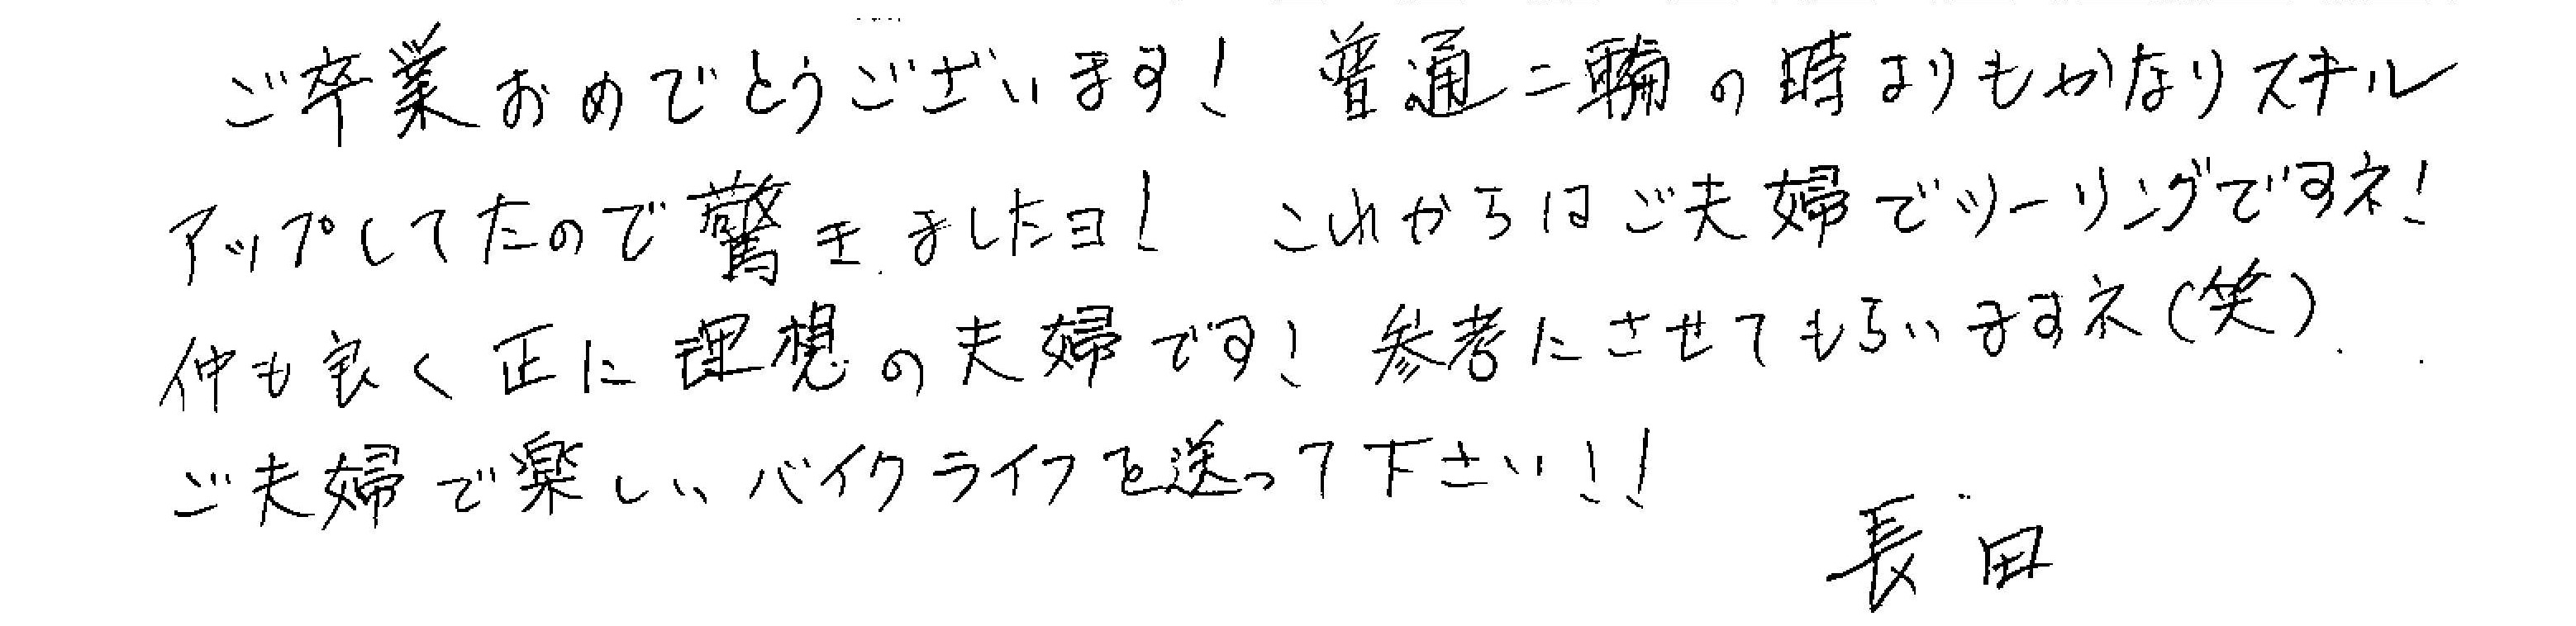 ご卒業おめでとうございます! 普通二輪の時よりもかなりスキル
アップしてたので驚きましたヨ! これからはご夫婦でツーリングですネ!
仲も良く正に理想の夫婦です! 参考にさせてもらいますネ(笑)
ご夫婦で楽しいバイクライフを送って下さい!!
長田